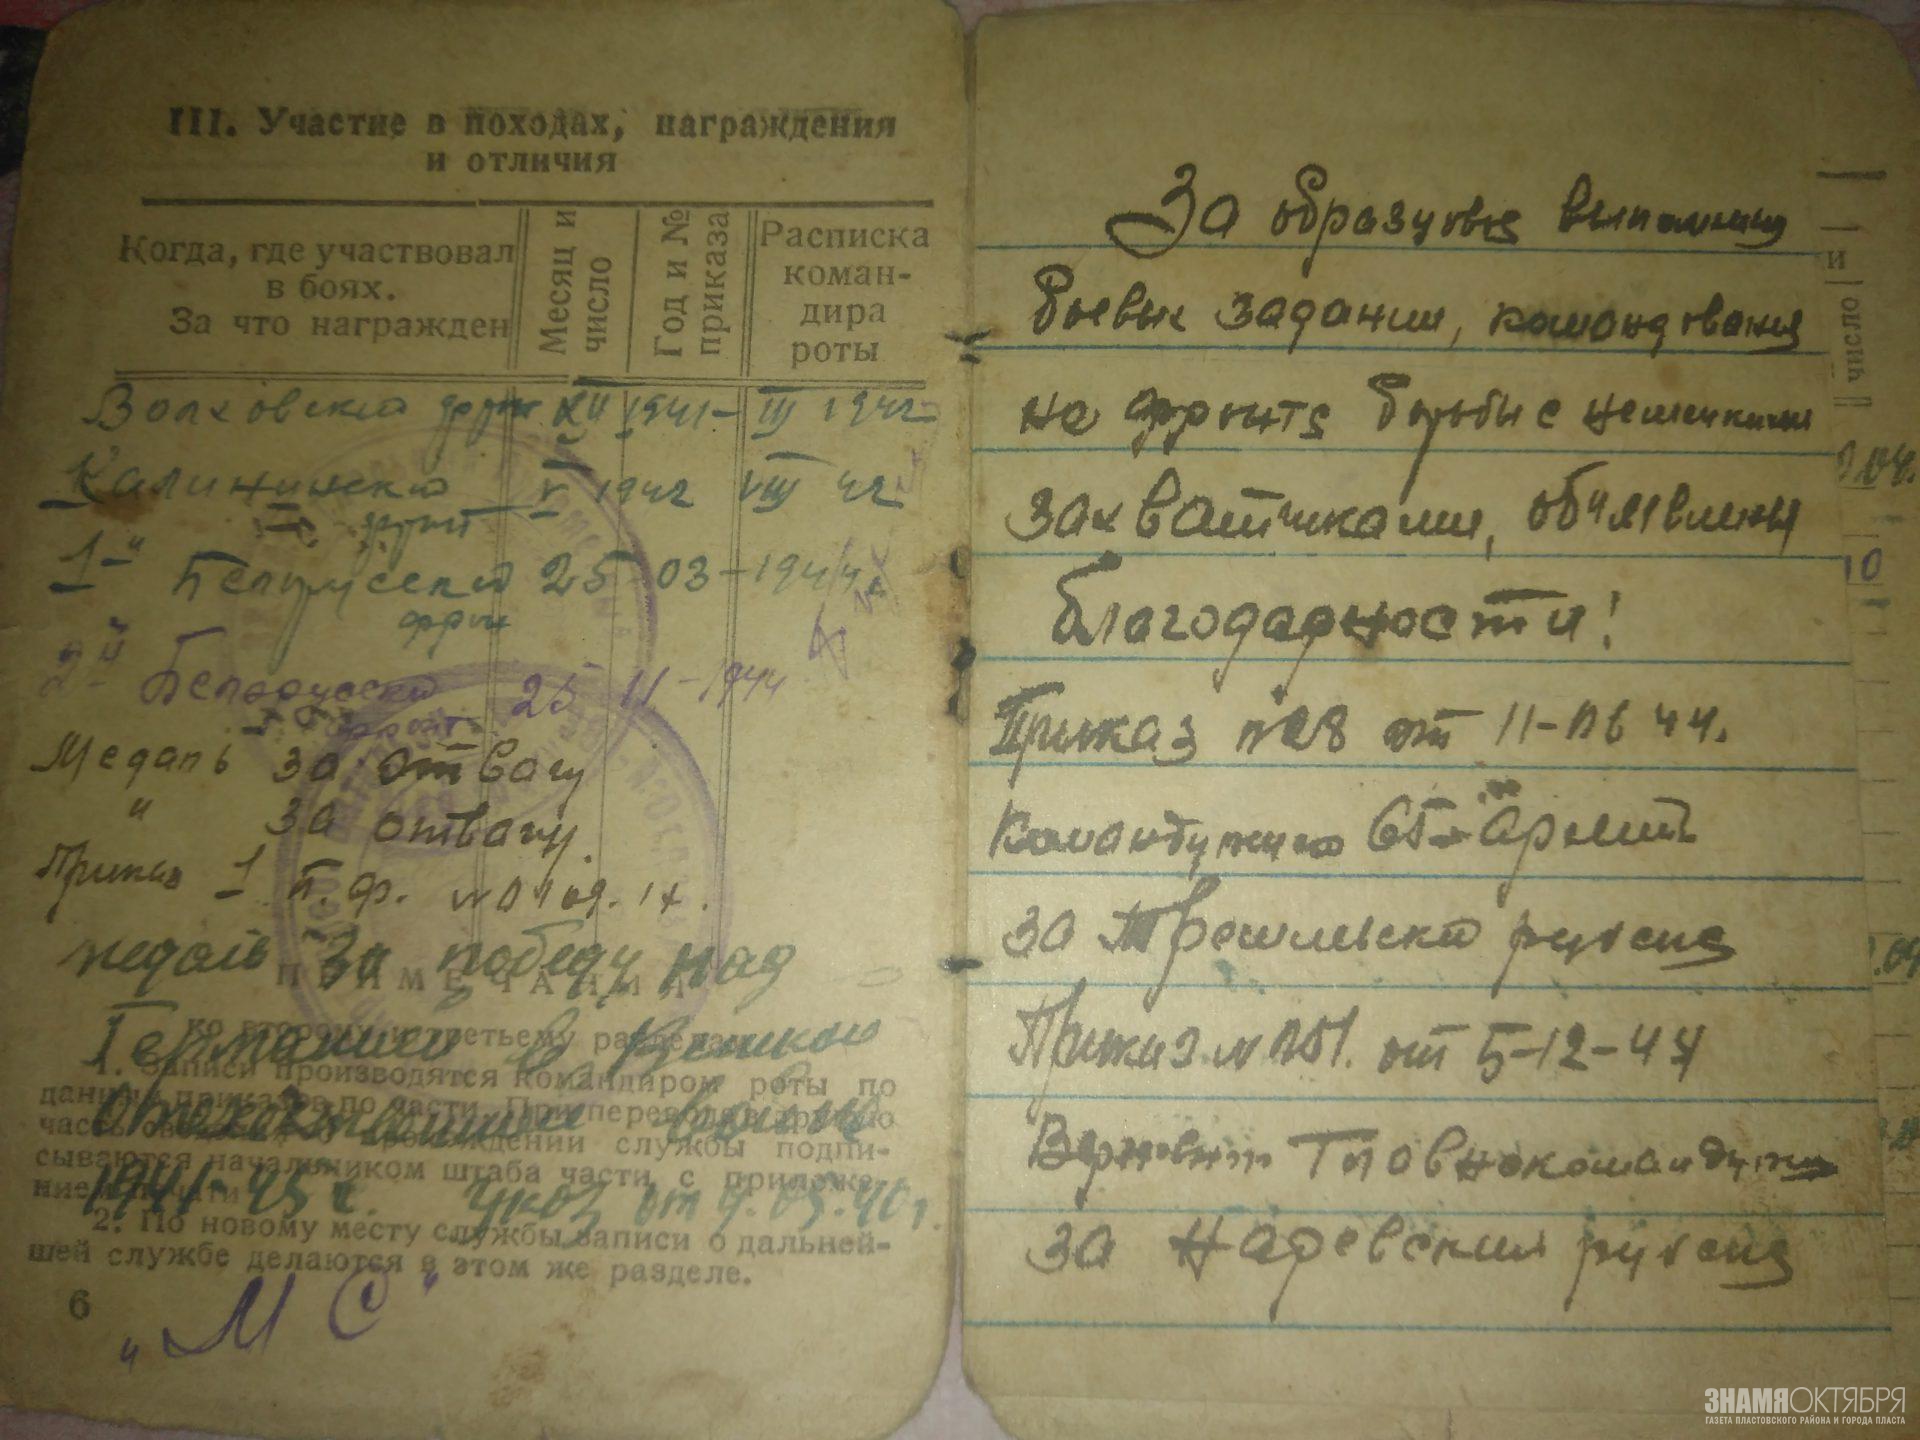 III. Участие в походах, награждения
и отличия
Когда, где участвовал
в боях.
За что награжден
Месяц и
число
Год и №
приказа
Расписка
коман-
дира
роты
Волховский фронт XII 1941- III 1942
Калининский V 1942 VIII 42
фронт
1-й Белорусский 25-03-1944
фрон
2й Белорусский 25 11-1944
фронт
Медаль за отвагу
" за отвагу.
1
медаль За победу над
ПРИМЕЧАНИЯ
Германией в Великой
ко второму и третьему разделам
1. Записи производятся командиром роты по
данным приказов по части. При переводе в другую
Отечественной войне
часть сведения о прохождении службы подпи-
сываются начальником штаба части с приложе-
нием печати
1941-45 г. Указ от 9.05.
2. По новому месту службы записи о дальней-
шей службе делаются в этом же разделе.
6
"МС"
За образцовые выполнения
боевых задании, командования
на фронте борьбы с немецкими
захватчиками, объявлены
благодарности!
Приказ от 44.
Командующего 65-й Армии
за
Приказ от 5-12-44
Верховного Главнокомандующ
за Наревский
и
число
10
ЗНАМЯОКТЯБРЯ
ГАЗЕТА ПЛАСТОВСКОГО РАЙОНА И ГОРОДА ПЛАСТА